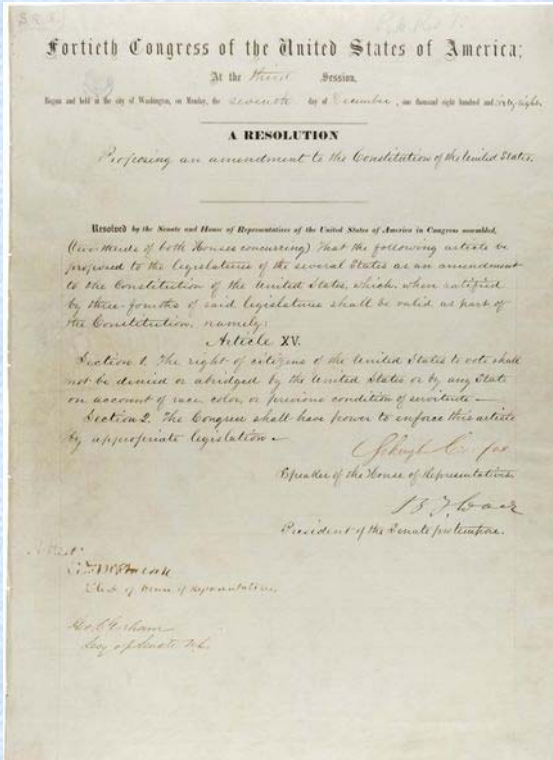 Fortieth Congress of the United States of America;
At the third Session,
Begun and held at the city of Washington, on Monday, the seventh day of December, one thousand eight hundred and sixty-eight.
A RESOLUTION
Proposing an amendment to the Constitution of the United States.
Resolved by the Senate and House of Representatives of the United States of America in Congress assembled,
(two-thirds of both Houses concurring) That the following article be
proposed to the legislatures of the several States as an amendment
to the Constitution of the United States, which, when ratified
by three-fourths of said legislatures shall be valid as part of
the Constitution, namely:
Article XV.
Section 1. The right of citizens of the United States to vote shall
not be denied or abridged by the United States or by any State
on account of race, color, or previous condition of servitude—
Section 2. The Congress shall have power to enforce this article
by appropriate legislation—
Schuyler Colfax
Speaker of the House of Representatives.
B F Wade
President of the Senate pro tempore.
Attest
Clerk of House of Representatives.
Geo. C. Gorham
Secy of Senate U.S.